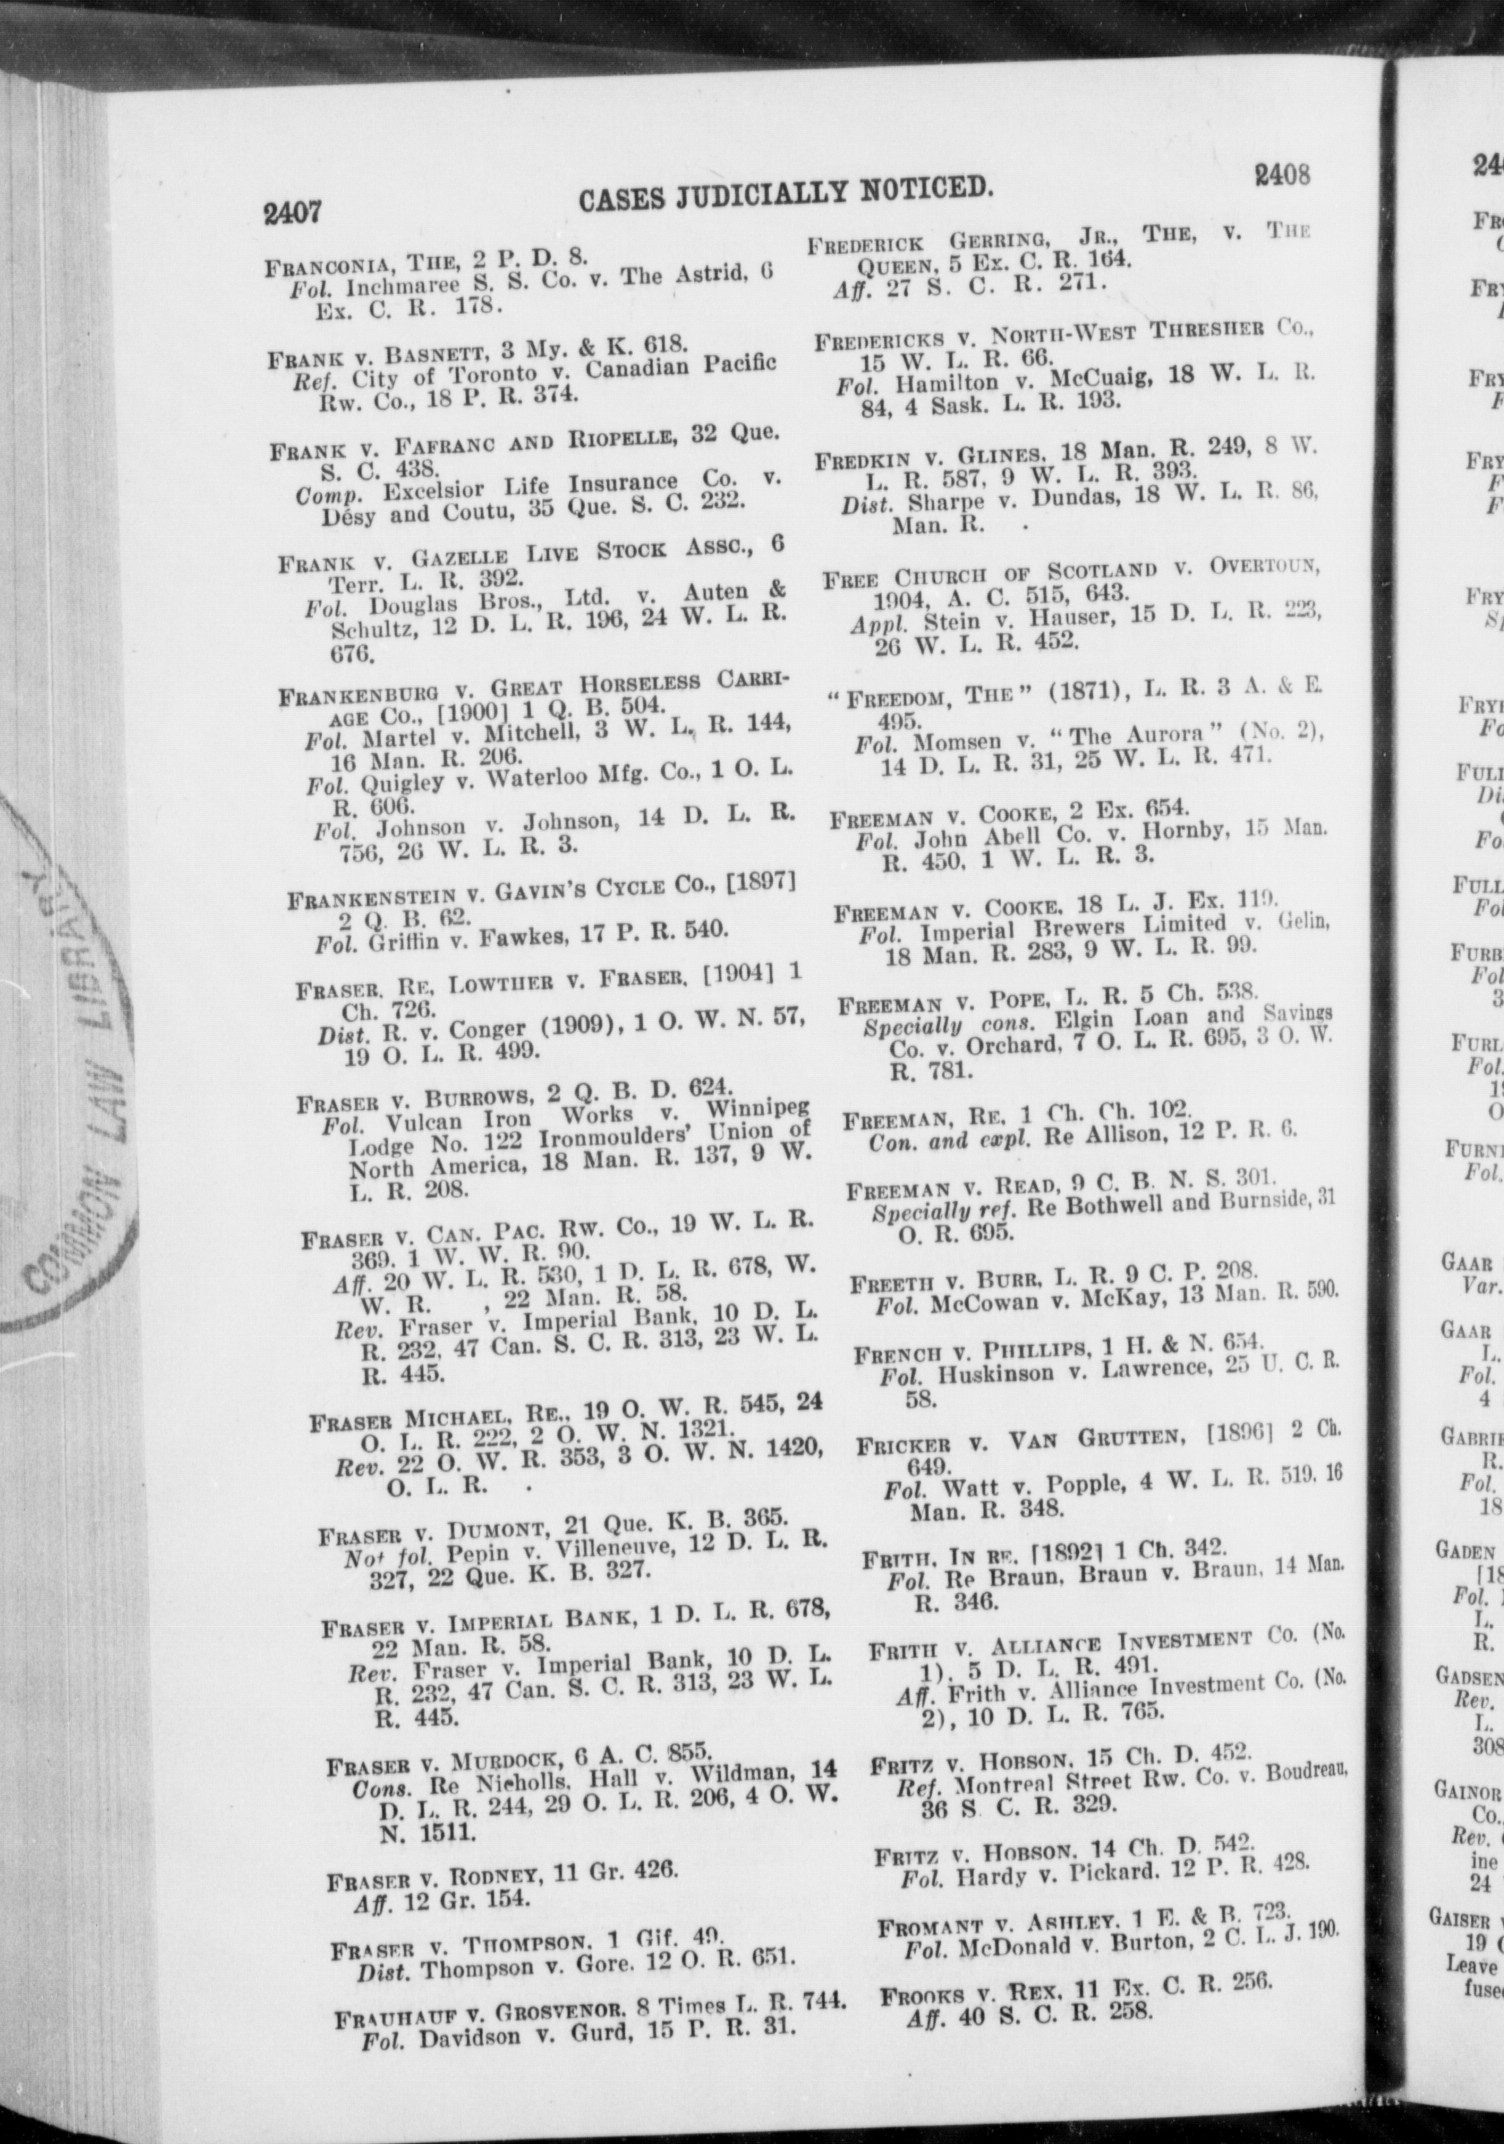 2407
CASES JUDICIALLY NOTICED.
2408
FRANCONIA, THE, 2 P. D. 8.
Fol. Inchmaree S. S. Co. v. The Astrid, 6
Ex. C. R. 178.
FRANK v. BASNETT, 3 My. & K. 618.
Ref. City of Toronto v. Canadian Pacific
Rw. Co., 18 P. R. 374.
FRANK v. FAFRANC AND RIOPELLE, 32 Que.
S. C. 438.
Comp. Excelsior Life Insurance Co. v.
Désy and Coutu, 35 Que. S. C. 232.
FRANK v. GAZELLE LIVE STOCK ASSC., 6
Terr. L. R. 392.
Fol. Douglas Bros., Ltd. v. Auten &
Schultz, 12 D. L. R. 196, 24 W. L. R.
676.
FRANKENBURG v. GREAT HORSELESS CARRI-
AGE Co., [1900] 1 Q. B. 504.
Fol. Martel v. Mitchell, 3 W. L. R. 144,
16 Man. R. 206.
Fol. Quigley v. Waterloo Mfg. Co., 1 O. L.
R. 606.
Fol. Johnson v. Johnson, 14 D. L. R.
756, 26 W. L. R. 3.
FRANKENSTEIN v. GAVIN'S CYCLE Co., [1897]
2 Q. B. 62.
Fol. Griffin v. Fawkes, 17 P. R. 540.
FRASER, RE, LOWTHER v. FRASER, [1904] 1
Ch. 726.
Dist. R. v. Conger (1909), 1 O. W. N. 57,
19 O. L. R. 499.
FRASER v. BURROWS, 2 Q. B. D. 624.
Fol. Vulcan Iron Works v. Winnipeg
Lodge No. 122 Ironmoulders' Union of
North America, 18 Man. R. 137, 9 W.
L. R. 208.
FRASER v. CAN. PAC. RW. Co., 19 W. L. R.
369, 1 W. W. R. 90.
Aff. 20 W. L. R. 530, 1 D. L. R. 678, W.
W. R. , 22 Man. R. 58.
Rev. Fraser v. Imperial Bank, 10 D. L.
R. 232, 47 Can. S. C. R. 313, 23 W. L.
R. 445.
FRASER MICHAEL, RE., 19 O. W. R. 545, 24
O. L. R. 222, 2 O. W. N. 1321.
Rev. 22 O. W. R. 353, 3 O. W. N. 1420,
O. L. R. .
FRASER v. DUMONT, 21 Que. K. B. 365.
Not fol. Pepin v. Villeneuve, 12 D. L. R.
327, 22 Que. K. B. 327.
FRASER v. IMPERIAL BANK, 1 D. L. R. 678,
22 Man. R. 58.
Rev. Fraser v. Imperial Bank, 10 D. L.
R. 232, 47 Can. S. C. R. 313, 23 W. L.
R. 445.
FRASER v. MURDOCK, 6 A. C. 855.
Cons. Re Nicholls, Hall v. Wildman, 14
D. L. R. 244, 29 O. L. R. 206, 4 O. W.
N. 1511.
FRASER v. RODNEY, 11 Gr. 426.
Aff. 12 Gr. 154.
FRASER v. THOMPSON, 1 Gif. 49.
Dist. Thompson v. Gore, 12 O. R. 651.
FRAUHAUF v. GROSVENOR, 8 Times L. R. 744.
Fol. Davidson v. Gurd, 15 P. R. 31.
FREDERICK GERRING, JR., THE, v. THE
QUEEN, 5 Ex. C. R. 164.
Aff. 27 S. C. R. 271.
FREDERICKS v. NORTH-WEST THRESHER Co.,
15 W. L. R. 66.
Fol. Hamilton v. McCuaig, 18 W. L. R.
84, 4 Sask. L. R. 193.
FREDKIN v. GLINES, 18 Man. R. 249, 8 W.
L. R. 587, 9 W. L. R. 393.
Dist. Sharpe v. Dundas, 18 W. L. R. 86,
Man. R. .
FREE CHURCH OF SCOTLAND v. OVERTOUN,
1904, A. C. 515, 643.
Appl. Stein v. Hauser, 15 D. L. R. 223,
26 W. L. R. 452.
"FREEDOM, THE" (1871), L. R. 3 A. & E.
495.
Fol. Momsen v. "The Aurora" (No. 2),
14 D. L. R. 31, 25 W. L. R. 471.
FREEMAN v. COOKE, 2 Ex. 654.
Fol. John Abell Co. v. Hornby, 15 Man.
R. 450, 1 W. L. R. 3.
FREEMAN v. COOKE, 18 L. J. Ex. 119.
Fol. Imperial Brewers Limited v. Gelin,
18 Man. R. 283, 9 W. L. R. 99.
FREEMAN v. POPE, L. R. 5 Ch. 538.
Specially cons. Elgin Loan and Savings
Co. v. Orchard, 7 O. L. R. 695, 3 O. W.
R. 781.
FREEMAN, RE, 1 Ch. Ch. 102.
Con. and expl. Re Allison, 12 P. R. 6.
FREEMAN v. READ, 9 C. B. N. S. 301.
Specially ref. Re Bothwell and Burnside, 31
O. R. 695.
FREETH v. BURR, L. R. 9 C. P. 208.
Fol. McCowan v. McKay, 13 Man. R. 590.
FRENCH v. PHILLIPS, 1 H. & N. 654.
Fol. Huskinson v. Lawrence, 25 U. C. R.
58.
FRICKER v. VAN GRUTTEN, [1896] 2 Ch.
649.
Fol. Watt v. Popple, 4 W. L. R. 519, 16
Man. R. 348.
FRITH, IN RE, [1892] 1 Ch. 342.
Fol. Re Braun, Braun v. Braun, 14 Man.
R. 346.
FRITH v. ALLIANCE INVESTMENT Co. (No.
1), 5 D. L. R. 491.
Aff. Frith v. Alliance Investment Co. (No.
2), 10 D. L. R. 765.
FRITZ v. HOBSON, 15 Ch. D. 452.
Ref. Montreal Street Rw. Co. v. Boudreau,
36 S. C. R. 329.
FRITZ v. HOBSON, 14 Ch. D. 542.
Fol. Hardy v. Pickard, 12 P. R. 428.
FROMANT v. ASHLEY, 1 E. & B. 723.
Fol. McDonald v. Burton, 2 C. L. J. 190.
FROOKS v. REX, 11 Ex. C. R. 256.
Aff. 40 S. C. R. 258.
COMMON LAW LIBRARY
GAAR
Var.
GAAR
L.
Fol.
4
R.
Fol.
18
GADEN
Fol.
L.
R.
GADSEN
Rev.
L.
308
GAINOR
Co.,
Rev.
ine
24
GAISER
19
Leave